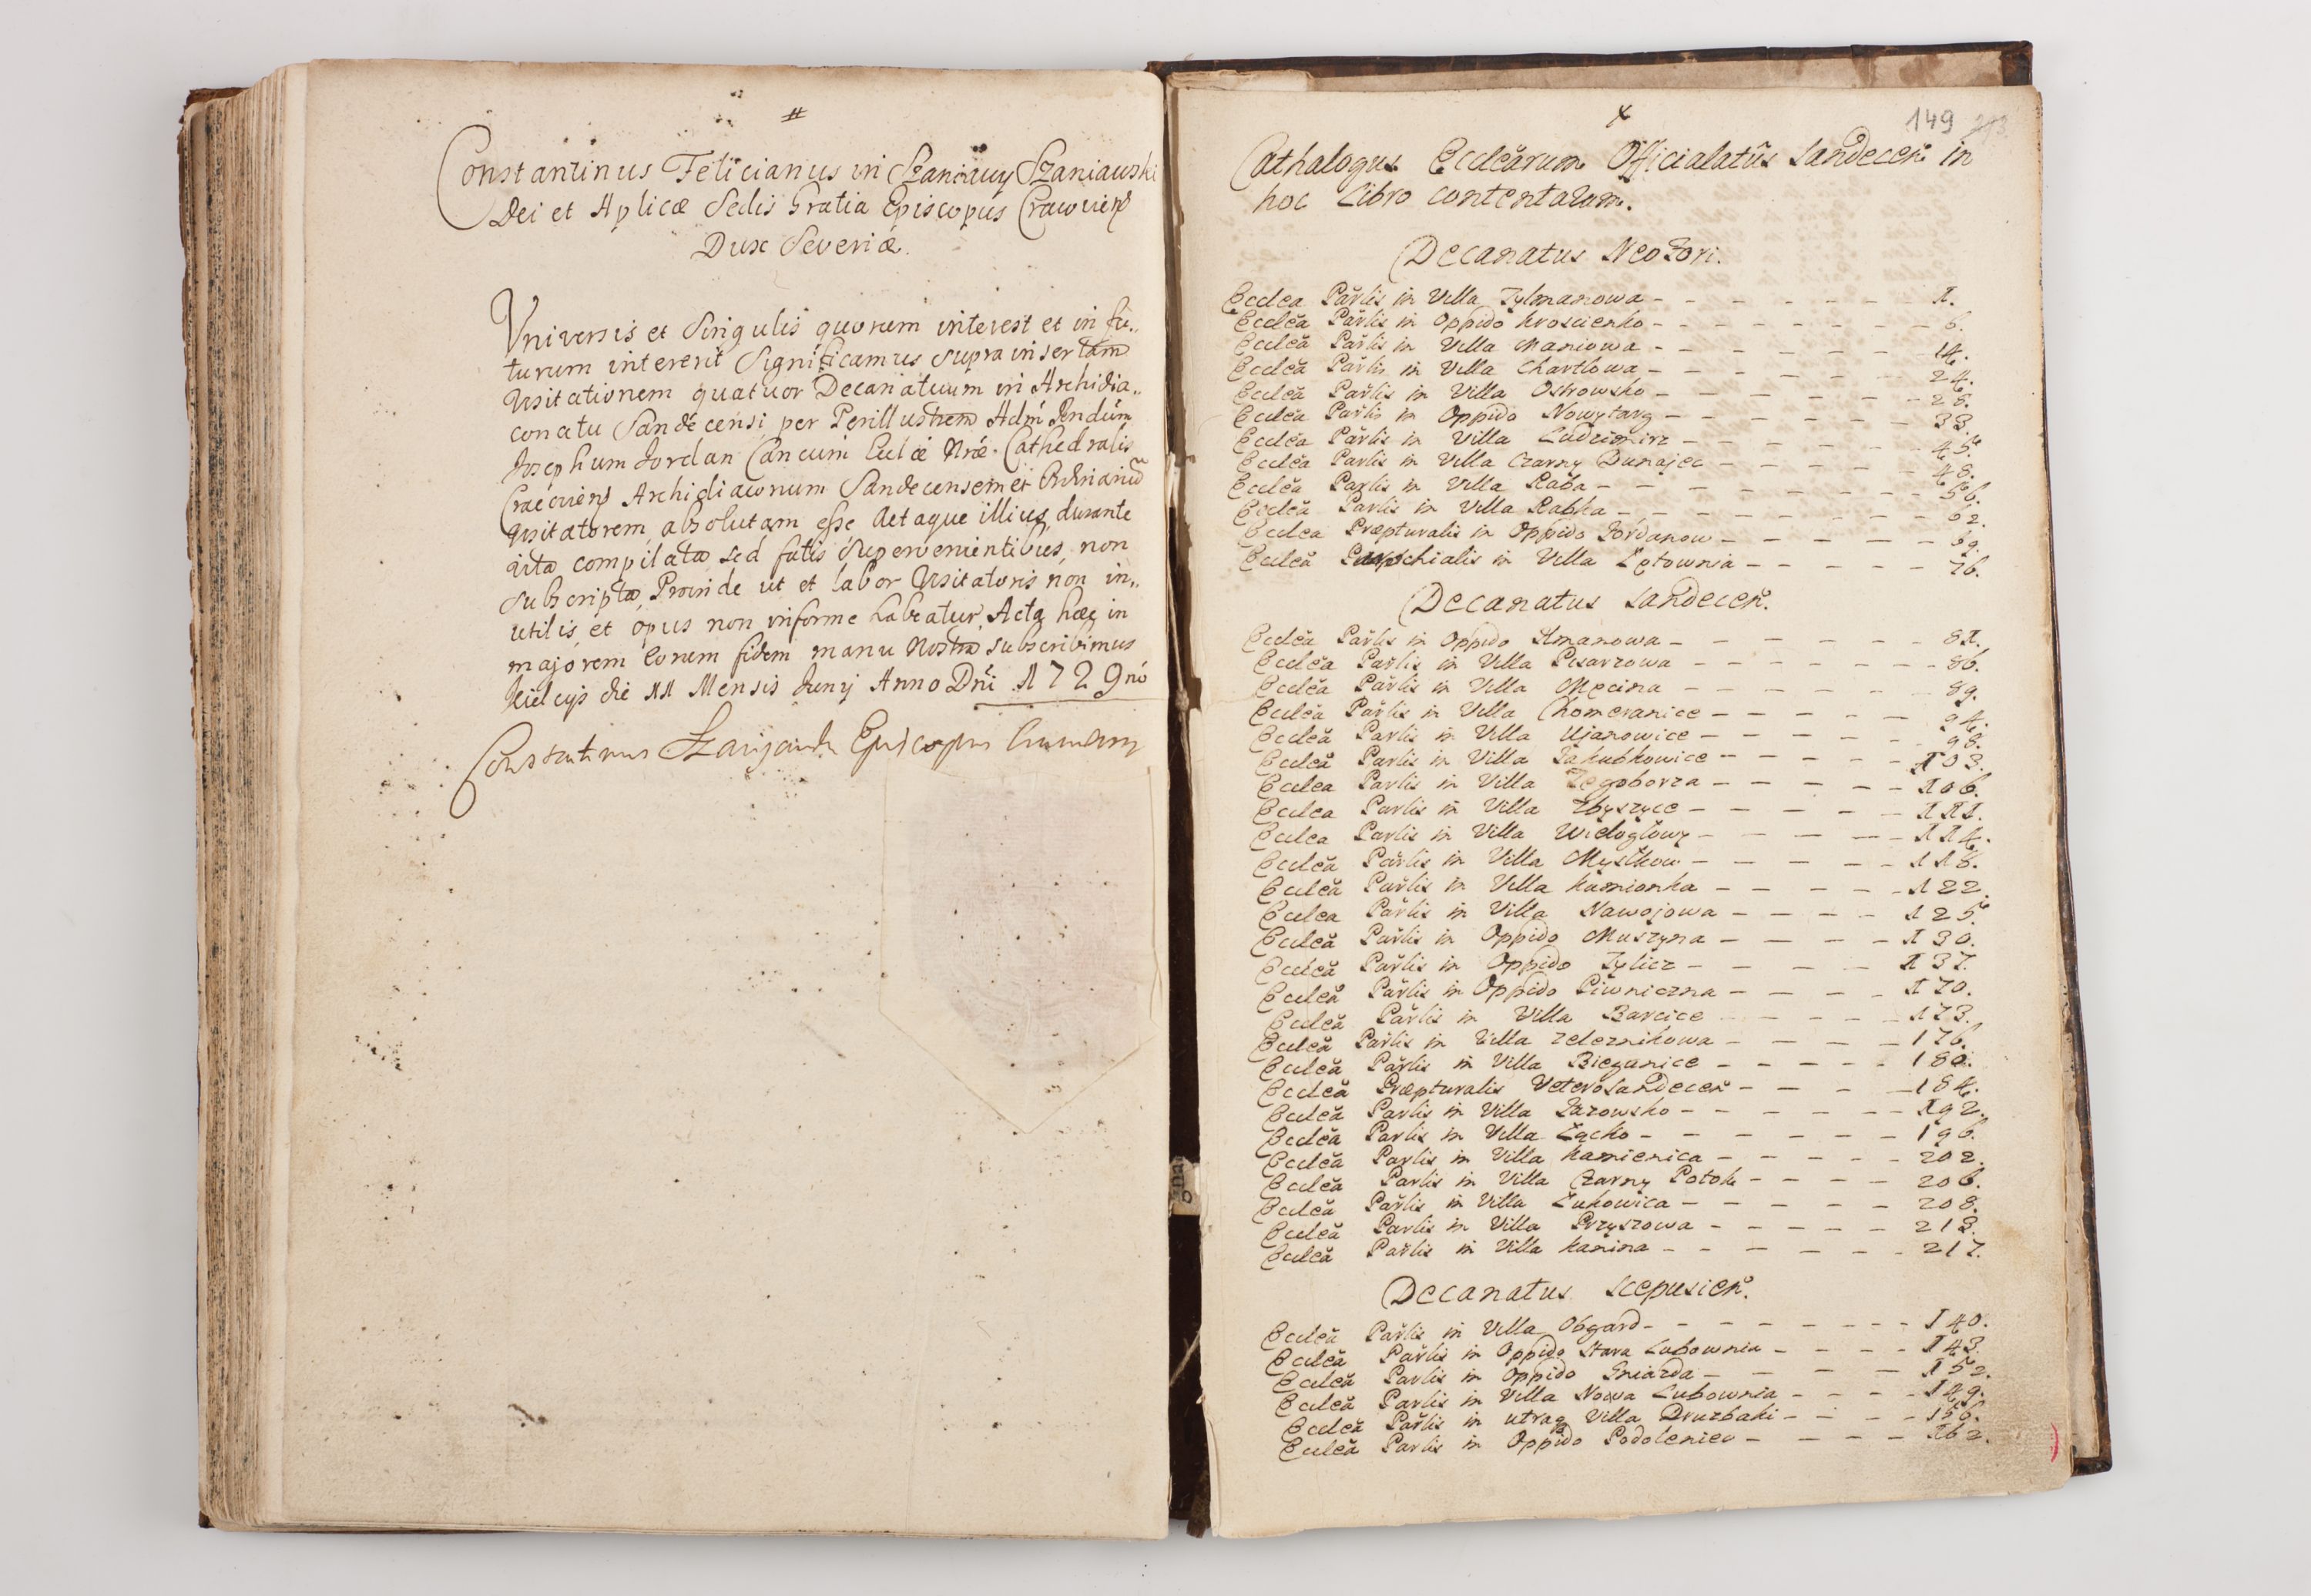 #
Constantinus Felicianus in Szaniawy Szaniawski
Dei et Aplicæ Sedis Gratia Episcopus Cracovien̄
Dux Severiæ.
Vniversis et Singulis quorum interest et in fu,,
turum intererit Significamus supra insertam
Visitationem quatuor Decanatuum in Archidia,,
conatu Sandecensi per Perillustrem Adm̄ Rndūm
Josephum Jordan Cancum Eccl̄æ Nræ Cathedralis
Cracovien̄ Archidiaconum Sandecensem et
Visitatorem absolutam esse Actaque illius, durante
vita compilata, sed fatis supervenientibus, non
subscripta, Proinde ut et labor Visitatoris non in,,
utilis, et opus non informe habeatur, Acta hæc in
majorem eorum fidem manu Nostra subscribimus
Kielcijs die 11 Mensis Junij Anno Dn̄i 1729nō
Constantinus Szaniawski Episcopus
149
Cathalogus Ecclēarum Officialatûs Sandecen̄ in
hoc Libro contentarum.
Decanatus Neofori.
Ecclēa Parlis in Villa Tylmanowa - - - - - - - 1.
Ecclēa Parlis in Oppido Kroscienko - - - - - - - 6.
Ecclēa Parlis in Villa Maniowa - - - - - - - 14.
Ecclēa Parlis in Villa Chartlowa - - - - - - - 24.
Ecclēa Parlis in Villa Ostrowsko - - - - - - - 28.
Ecclēa Parlis in Oppido Nowytarg - - - - - - 33.
Ecclēa Parlis in Villa Ludzimirz - - - - - - 45.
Ecclēa Parlis in Villa Czarny Dunajec - - - - - - 48.
Ecclēa Parlis in Villa Raba - - - - - - - 56.
Ecclēa Parlis in Villa Rabka - - - - - - - 62.
Ecclēa Præpturalis in Oppido Jordanow - - - - - - 69.
Ecclēa Parochialis in Villa Łętownia - - - - - 76.
Decanatus Sandecen̄.
Ecclēa Parlis in Oppido Limanowa - - - - - - - 81.
Ecclēa Parlis in Villa Pisarzowa - - - - - - - 86.
Ecclēa Parlis in Villa Męcina - - - - - - 89.
Ecclēa Parlis in Villa Chomeranice - - - - - 94.
Ecclēa Parlis in Villa Ujanowice - - - - - - 98.
Ecclēa Parlis in Villa Jakubkowice - - - - - 103.
Ecclēa Parlis in Villa Zegoborza - - - - - 106.
Ecclēa Parlis in Villa Zbyszyce - - - - - 111.
Ecclēa Parlis in Villa Wielogłowy - - - - - 114.
Ecclēa Parlis in Villa Mystkow - - - - - 118.
Ecclēa Parlis in Villa Kamionka - - - - - 122.
Ecclēa Parlis in Villa Nawojowa - - - - 125.
Ecclēa Parlis in Oppido Muszyna - - - - - 130.
Ecclēa Parlis in Oppido Tylicz - - - - - 137.
Ecclēa Parlis in Oppido Piwniczna - - - - 170.
Ecclēa Parlis in Villa Barcice - - - - - 173.
Ecclēa Parlis in Villa Zeleznikowa - - - - - 176.
Ecclēa Parlis in Villa Bieganice - - - - - 180.
Ecclēa Præpturalis Veterosandecen̄ - - - - 184.
Ecclēa Parlis in Villa Jazowsko - - - - - - 192.
Ecclēa Parlis in Villa Łącko - - - - - - 196.
Ecclēa Parlis in Villa Kamienica - - - - - 202.
Ecclēa Parlis in Villa Czarny Potok - - - - 206.
Ecclēa Parlis in Villa Łukowica - - - - - 208.
Ecclēa Parlis in Villa Przyszowa - - - - - 213.
Ecclēa Parlis in Villa Kanina - - - - - - 217.
Decanatus Scepusien̄.
Ecclēa Parlis in Villa Obgard - - - - - - - - 140.
Ecclēa Parlis in Oppido Stara Lubownia - - - - 143.
Ecclēa Parlis in Oppido Gniazda - - - - - 152.
Ecclēa Parlis in Villa Nowa Lubownia - - - - 149.
Ecclēa Parlis in utraq Villa Druzbaki - - - - 156.
Ecclēa Parlis in Oppido Podoleniec - - - - 162.